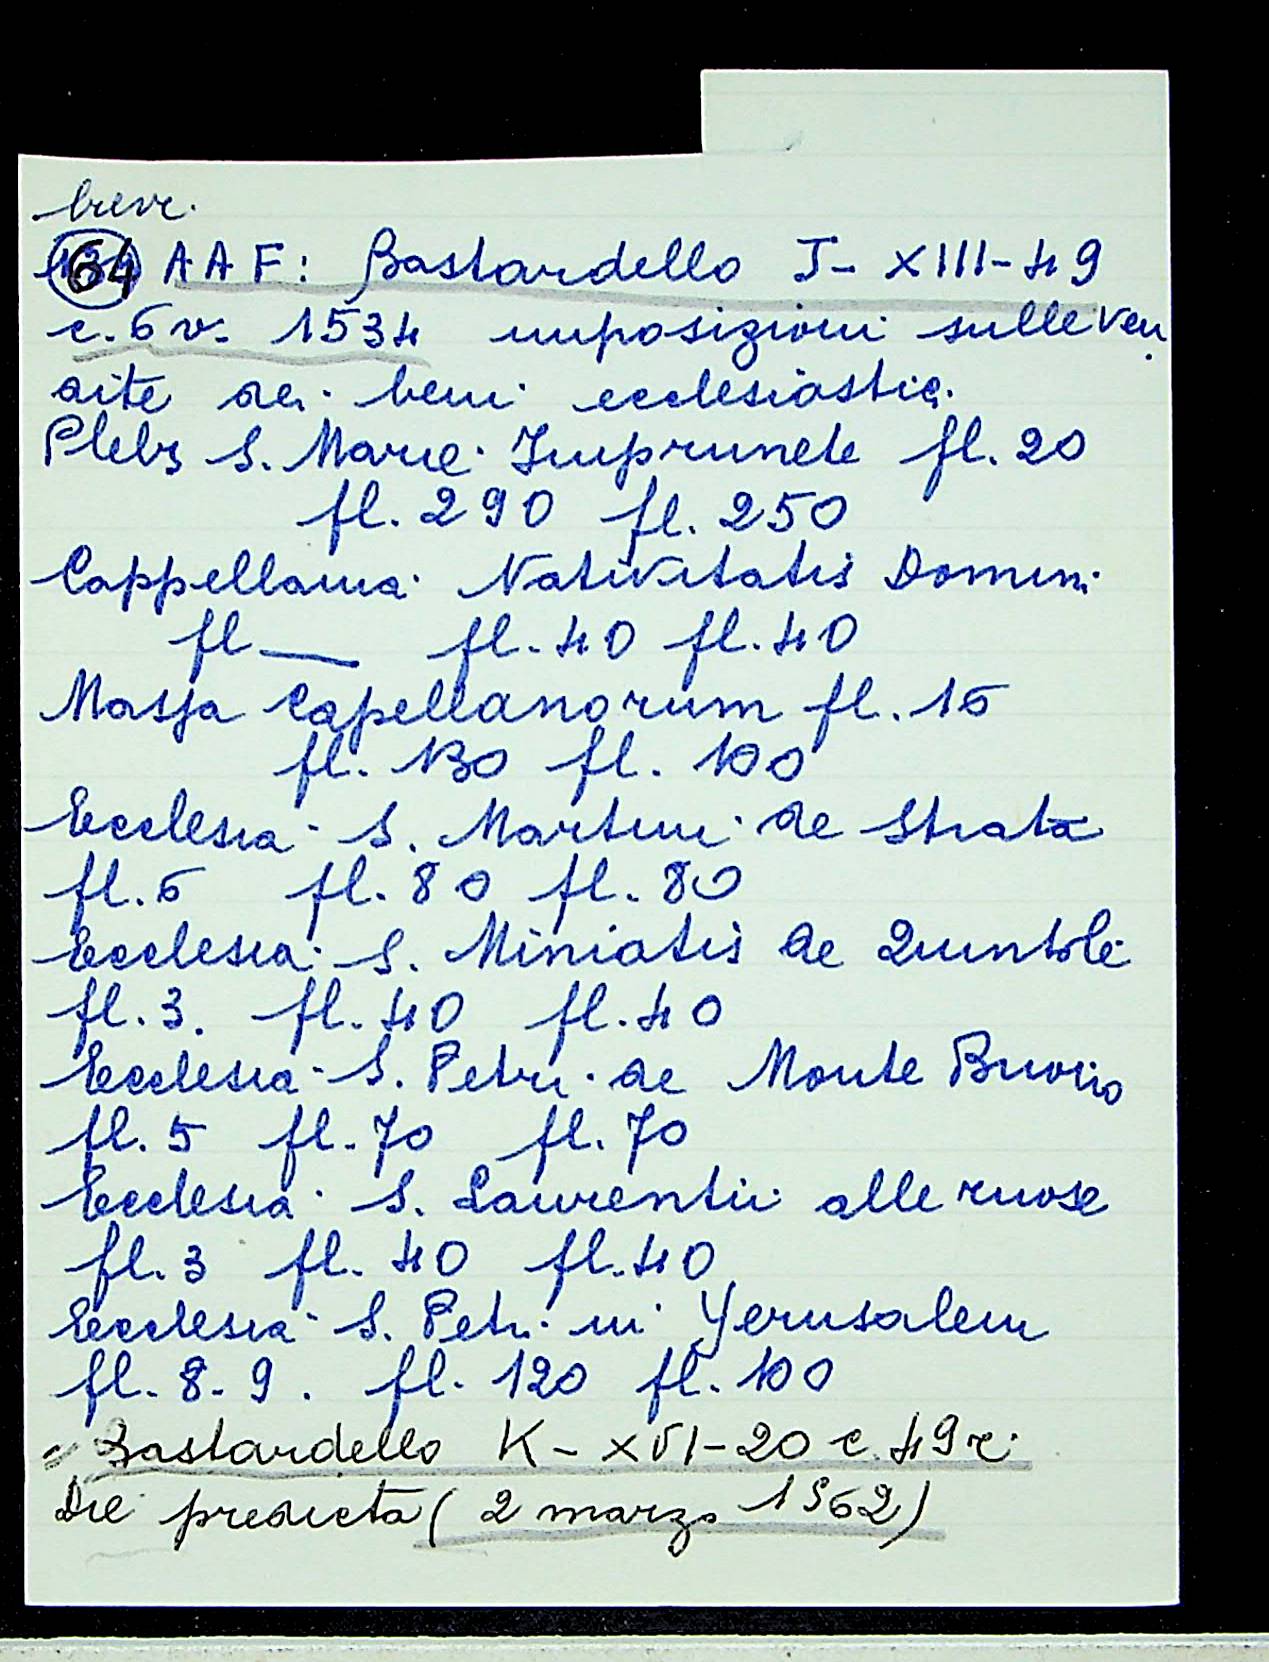 breve.
64 AAF: Bastardello J- XIII-49
c. 6 v. 1534 imposizioni sulle ven
dite dei beni ecclesiastici.
Plebs S. Marie Imprunete fl. 20
fl. 290 fl. 250
Cappellania Nativitatis Domini
fl — fl. 40 fl. 40
Massa Capellanorum fl. 15
fl. 130 fl. 100
Ecclesia S. Martini de Strata
fl. 6 fl. 80 fl. 80
Ecclesia S. Miniatis de Quintole
fl. 3. fl. 40 fl. 40
Ecclesia S. Petri de Monte Buono
fl. 5 fl. 70 fl. 70
Ecclesia S. Laurentii alle ruose
fl. 3 fl. 40 fl. 40
Ecclesia S. Petri in Yerusalem
fl. 8-9. fl. 120 fl. 100
" Bastardello K- XVI-20 c. 49 r.
Die predicta (2 marzo 1562)